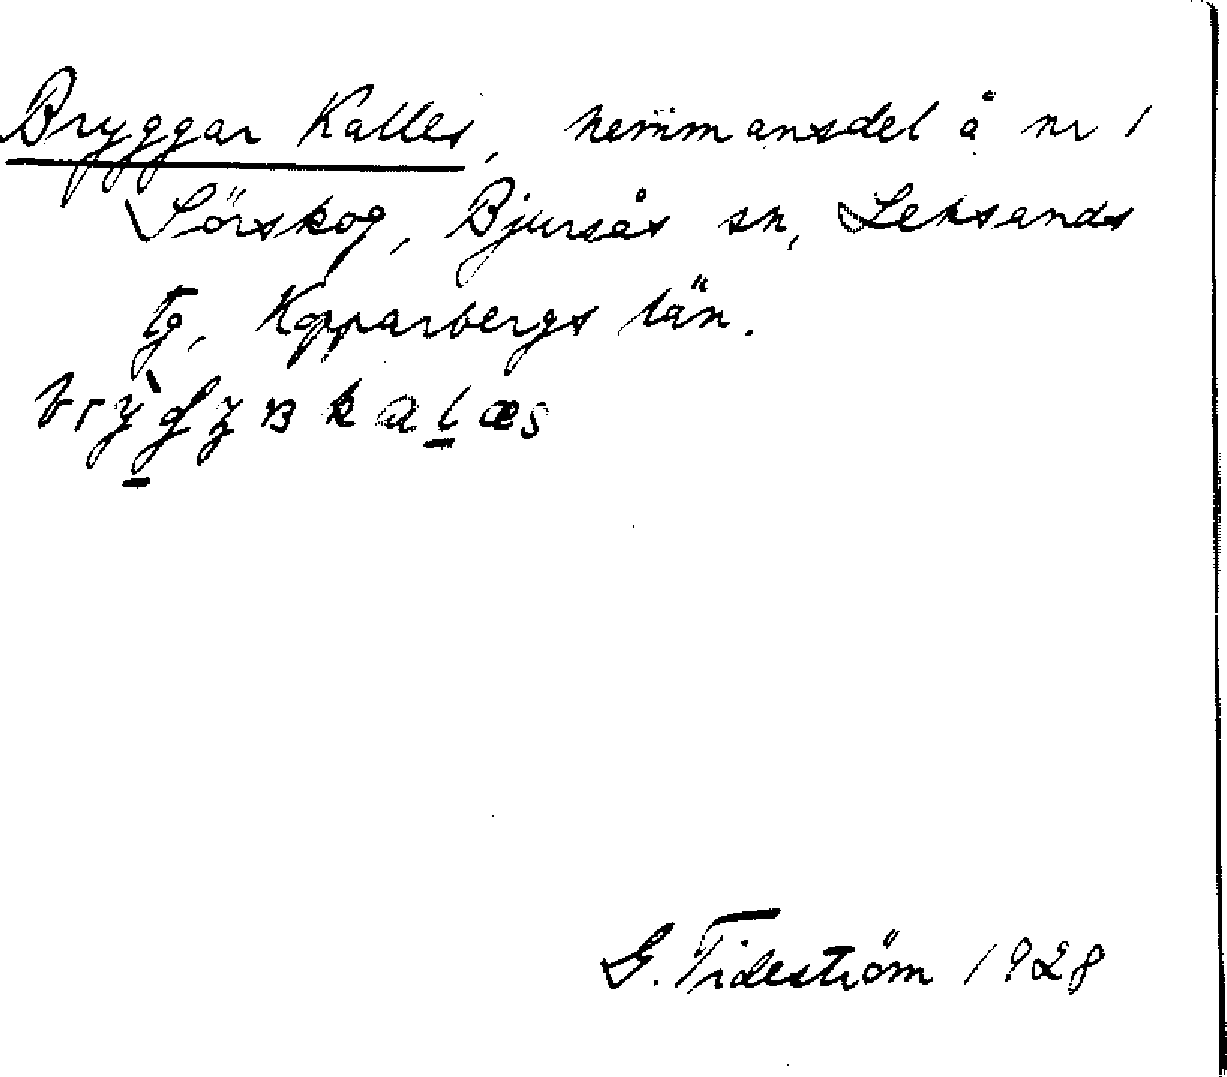 Bryggar Kalles, hemmansdel å nr 1
Sörskog, Bjursås sn, Leksands
tg, Kopparbergs län.
G. Tideström 1928